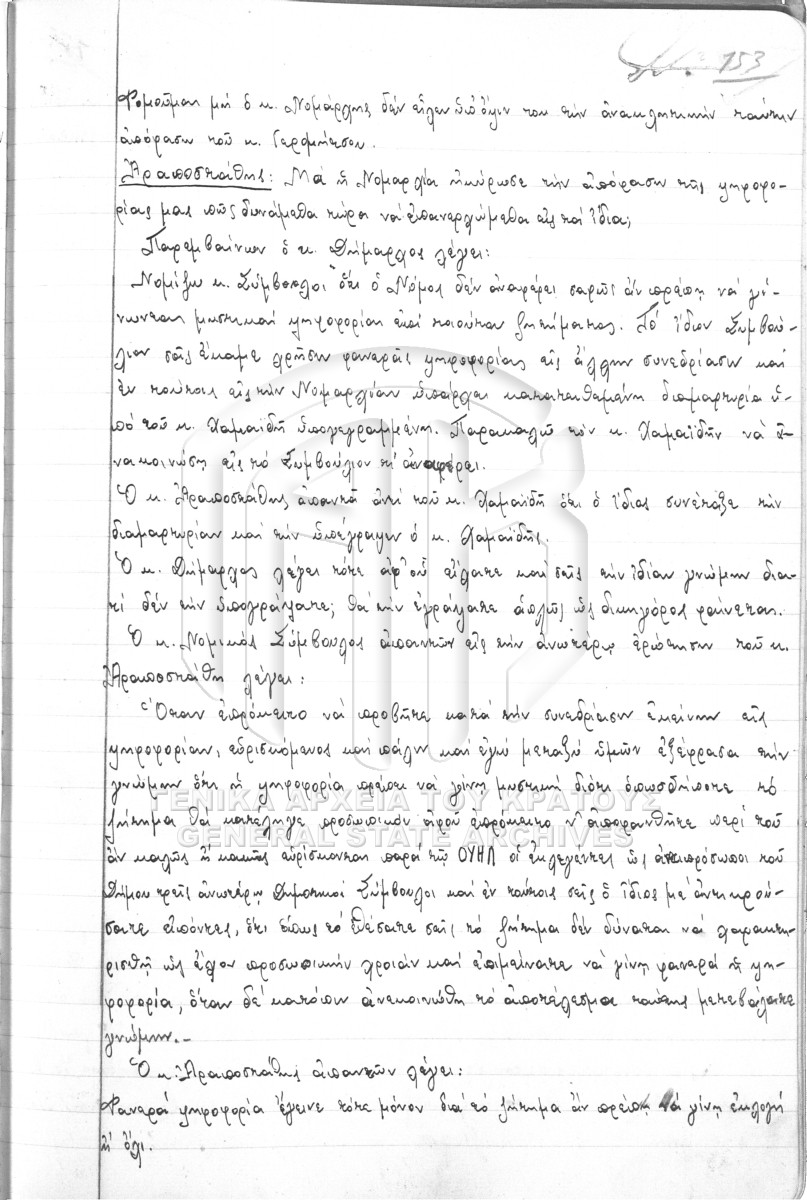 153
Φοροῦμαι μὴ ὁ κ. Νομάρχης δὲν εἶχεν ὑπ' ὄψιν του τὴν ἀνακλητικὴν ταύτην
ἀπόφασιν τοῦ κ.
Ἀραποστάθης: Μὰ ἡ Νομαρχία ἠκύρωσε τὴν ἀπόφασιν τῆς ψηφοφο-
ρίας μας πῶς δυνάμεθα τώρα νὰ ἐπανερχώμεθα εἰς τὰ ἴδια;
Παρεμβαίνων ὁ κ. Δήμαρχος λέγει:
Νομίζω κ. Σύμβουλοι ὅτι ὁ Νόμος δὲν ἀναφέρει σαφῶς ἂν πρέπῃ νὰ γί-
νωνται μυστικαὶ ψηφοφορίαι ἐπὶ τοιούτου ζητήματος. Τὸ ἴδιον Συμβού-
λιον σεῖς ἔκαμε χρῆσιν φανερᾶς ψηφοφορίας εἰς ἄλλην συνεδρίασιν καὶ
ἐν τούτοις εἰς τὴν Νομαρχίαν ὑπάρχει κατατεθειμένη διαμαρτυρία ὑ-
πὸ τοῦ κ. Χαμαϊδῆ ὑπογεγραμμένη. Παρακαλῶ τὸν κ. Χαμαϊδῆν νὰ ἀ-
νακοινώσῃ εἰς τὸ Συμβούλιον τί ἀναφέρει.
Ὁ κ. Ἀραποστάθης ἀπαντᾷ ἀντὶ τοῦ κ. Χαμαϊδῆ ὅτι ὁ ἴδιος συνέταξε τὴν
διαμαρτυρίαν καὶ τὴν ὑπέγραψεν ὁ κ. Χαμαϊδῆς.
Ὁ κ. Δήμαρχος λέγει τότε ἀφ' οὗ εἴχατε καὶ σεῖς τὴν ἰδίαν γνώμην δια-
τί δὲν τὴν ὑπογράψατε; θὰ τὴν ἐγράψατε ἁπλῶς ὡς δικηγόρος φαίνεται.
Ὁ κ. Νομικὸς Σύμβουλος ἀπαντῶν εἰς τὴν ἀνωτέρω ἐρώτησιν τοῦ κ.
Ἀραποστάθη λέγει:
Ὅταν ἐπρόκειτο νὰ προβῆτε κατὰ τὴν συνεδρίασιν ἐκείνην εἰς
ψηφοφορίαν, εὑρισκόμενος καὶ πάλιν καὶ ἐγὼ μεταξὺ ὑμῶν ἐξέφρασα τὴν
γνώμην ὅτι ἡ ψηφοφορία πρέπει νὰ γίνῃ μυστικὴ διότι ὁπωσδήποτε τὸ
ζήτημα θὰ κατέληγε προσωπικὸν ἀφοῦ ἐπρόκειτο ν' ἀποφανθῆτε περὶ τοῦ
ἂν καλῶς ἢ κακῶς εὑρίσκονται παρὰ τῇ ΟΥΗΛ οἱ ἐκλεγέντες ὡς ἀντιπρόσωποι τοῦ
Δήμου τρεῖς ἀνωτέρω Δημοτικοὶ Σύμβουλοι καὶ ἐν τούτοις σεῖς ὁ ἴδιος μὲ ἀντεκρού-
σατε εἰπόντες, ὅτι ὅπως τὸ ἐθέσατε σεῖς τὸ ζήτημα δὲν δύναται νὰ χαρακτη-
ρισθῇ ὡς ἔχον προσωπικὴν χροιὰν καὶ ἐπιμείνατε νὰ γίνῃ φανερὰ ἡ ψη-
φοφορία, ὅταν δὲ κατόπιν ἀνεκοινώθη τὸ ἀποτέλεσμα ταύτης μετεβάλατε
γνώμην.-
Ὁ κ. Ἀραποστάθης ἀπαντῶν λέγει:
Φανερὰ ψηφοφορία ἔγεινε τότε μόνον διὰ τὸ ζήτημα ἂν πρέπῃ νὰ γίνῃ ἐκλογὴ
ἢ ὄχι.
ΓΕΝΙΚΑ ΑΡΧΕΙΑ ΤΟΥ ΚΡΑΤΟΥΣ
GENERAL STATE ARCHIVES